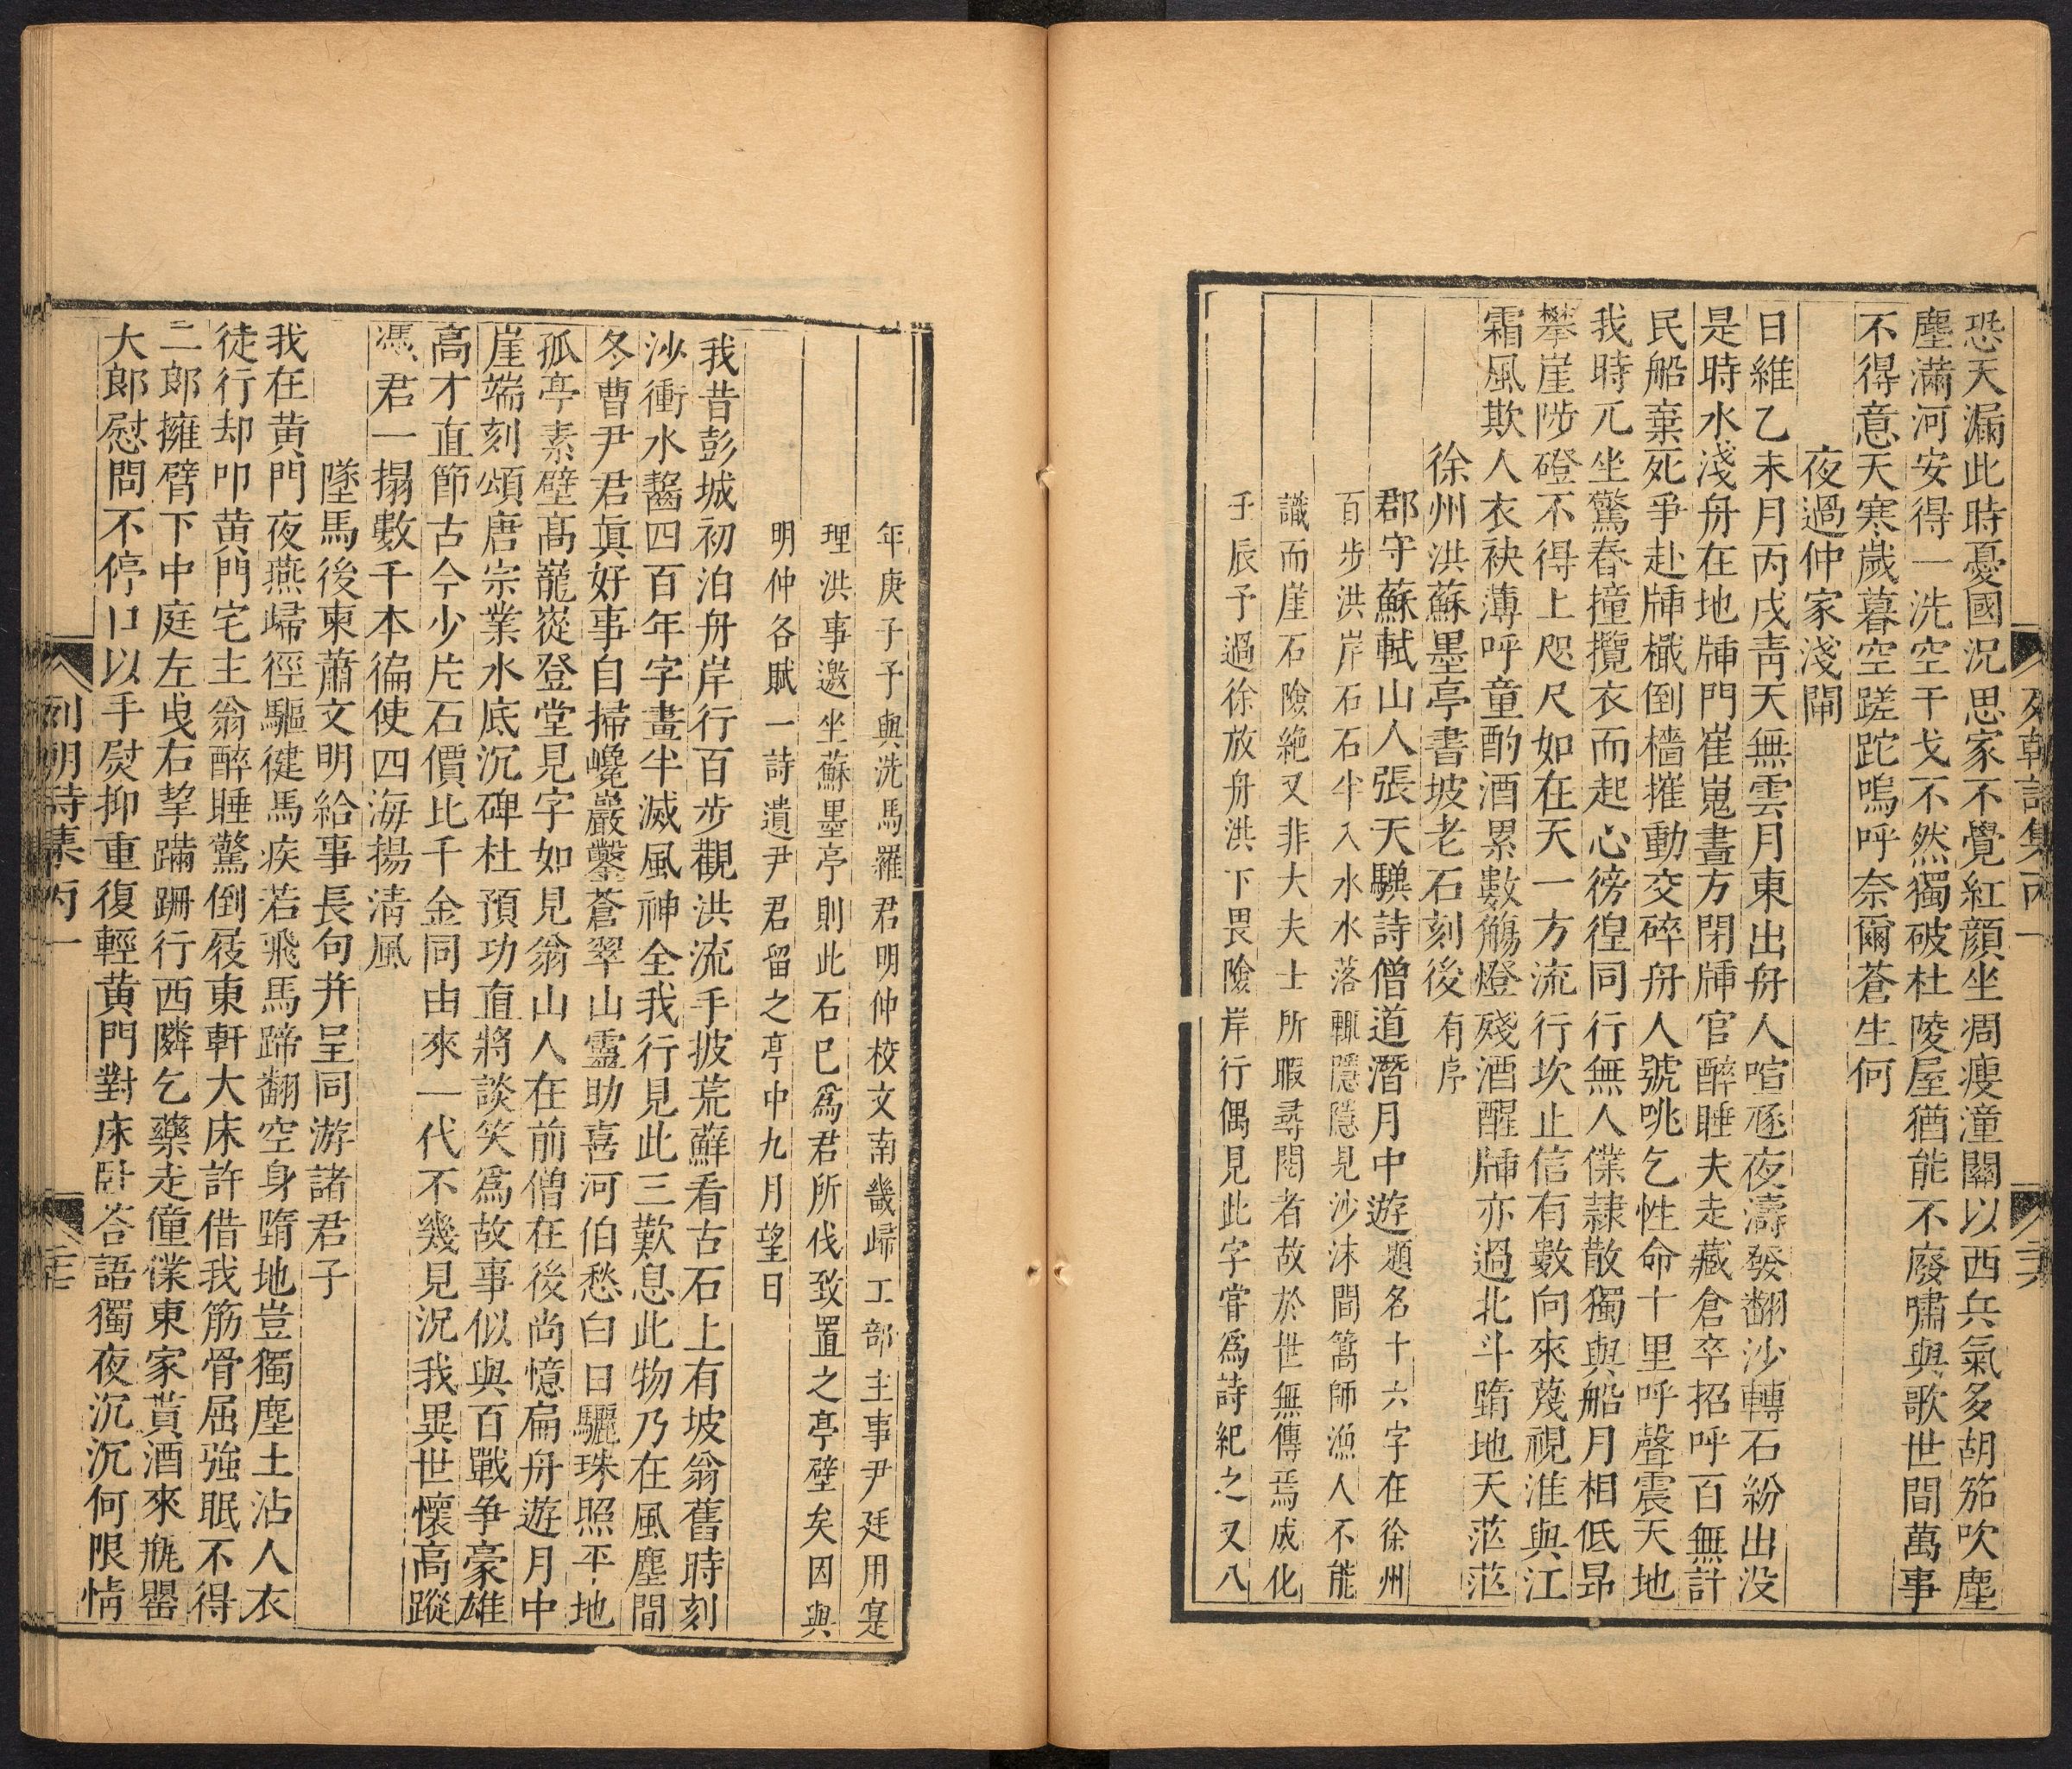 恐天漏此時憂國況思家不覺紅顏坐凋瘦潼關以西兵氣多胡笳吹塵
塵滿河安得一洗空干戈不然獨破杜陵屋猶能不廢嘯與歌世間萬事
不得意天寒歲暮空蹉跎嗚呼奈爾蒼生何
夜過仲家淺閘
日維乙未月丙戌青天無雲月東出舟人喧豗夜濤發翻沙轉石紛出没
是時水淺舟在地牐門崔嵬晝方閉牐官醉睡夫走藏倉卒招呼百無計
民船棄死爭赴牐檝倒檣摧動交碎舟人號咷乞性命十里呼聲震天地
我時兀坐驚舂撞攬衣而起心徬徨同行無人僕隷散獨與船月相低昂
攀崖陟磴不得上咫尺如在天一方流行坎止信有數向來蔑視淮與江
霜風欺人衣袂薄呼童酌酒累數觴燈殘酒醒牐亦過北斗墮地天茫茫
徐州洪蘇墨亭書坡老石刻後有序
郡守蘇軾山人張天驥詩僧道潛月中遊題名十六字在徐州
百步洪岸石石半入水水落輒隱隱見沙沫間篙師漁人不能
識而崖石險絶又非大夫士所暇尋閱者故於世無傳焉成化
壬辰予過徐放舟洪下畏險岸行偶見此字甞爲詩紀之又八
年庚子予與洗馬羅君明仲校文南畿歸工部主事尹廷用寔
理洪事邀坐蘇墨亭則此石已爲君所伐致置之亭壁矣因與
明仲各賦一詩遺尹君留之亭中九月望日
我昔彭城初泊舟岸行百步觀洪流手披荒蘚看古石上有坡翁舊時刻
沙衝水齧四百年字畫半滅風神全我行見此三歎息此物乃在風塵間
冬曹尹君眞好事自掃巉巖鑿蒼翠山靈助喜河伯愁白日驪珠照平地
孤亭素壁髙巃嵸登堂見字如見翁山人在前僧在後尚憶扁舟遊月中
崖端刻頌唐宗業水底沉碑杜預功直將談笑爲故事似與百戰爭豪雄
高才直節古今少片石價比千金同由來一代不幾見況我異世懷高蹤
馮君一搨數千本徧使四海揚清風
墜馬後柬蕭文明給事長句并呈同游諸君子
我在黄門夜燕歸徑驅健馬疾若飛馬蹄翻空身墮地豈獨塵土沾人衣
徒行却叩黄門宅主翁醉睡驚倒屐東軒大床許借我筋骨屈強眠不得
二郎擁臂下中庭左曳右挈蹣跚行西隣乞藥走僮僕東家貰酒來甁罌
大郎慰問不停口以手熨抑重復輕黄門對床卧答語獨夜沉沉何限情
列朝詩集丙一
二十六
列朝詩集丙一
二十七